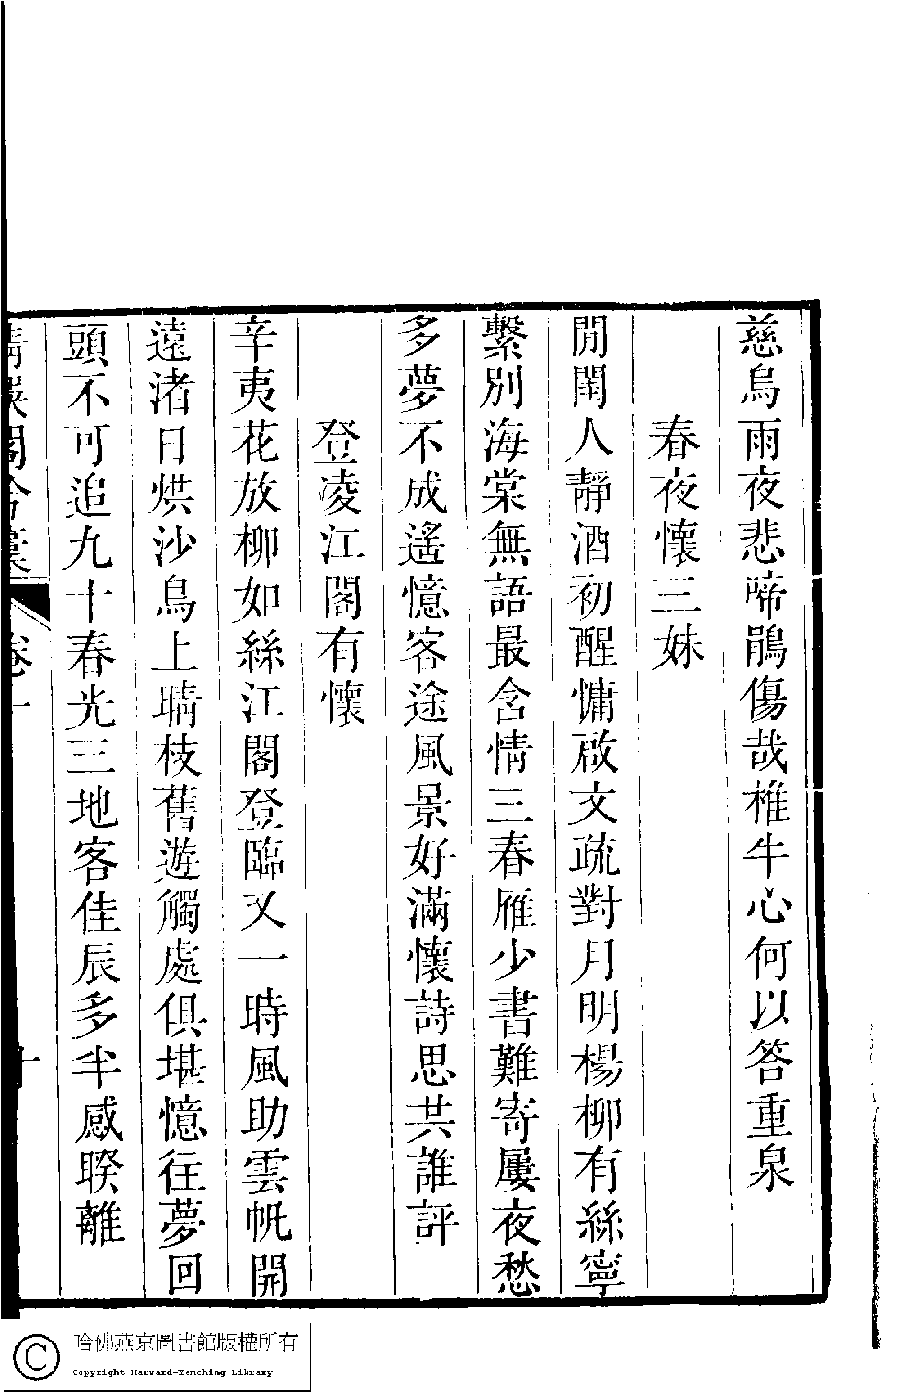 慈烏雨夜悲啼鵑傷哉椎牛心何以答重泉
春夜懷三妹
閒閨人靜酒初醒慵啟文疏對月明楊柳有絲寧
繫別海棠無語最含情三春雁少書難寄屢夜愁
多夢不成遙憶客途風景好滿懷詩思共誰評
登凌江閣有懷
辛夷花放柳如絲江閣登臨又一時風助雲帆開
遠渚日烘沙鳥上晴枝舊遊觸處俱堪憶往夢回
頭不可追九十春光三地客佳辰多半感睽離
閣
卷十
哈佛燕京圖書館版權所有
Copyright Harvard-Yenching Library